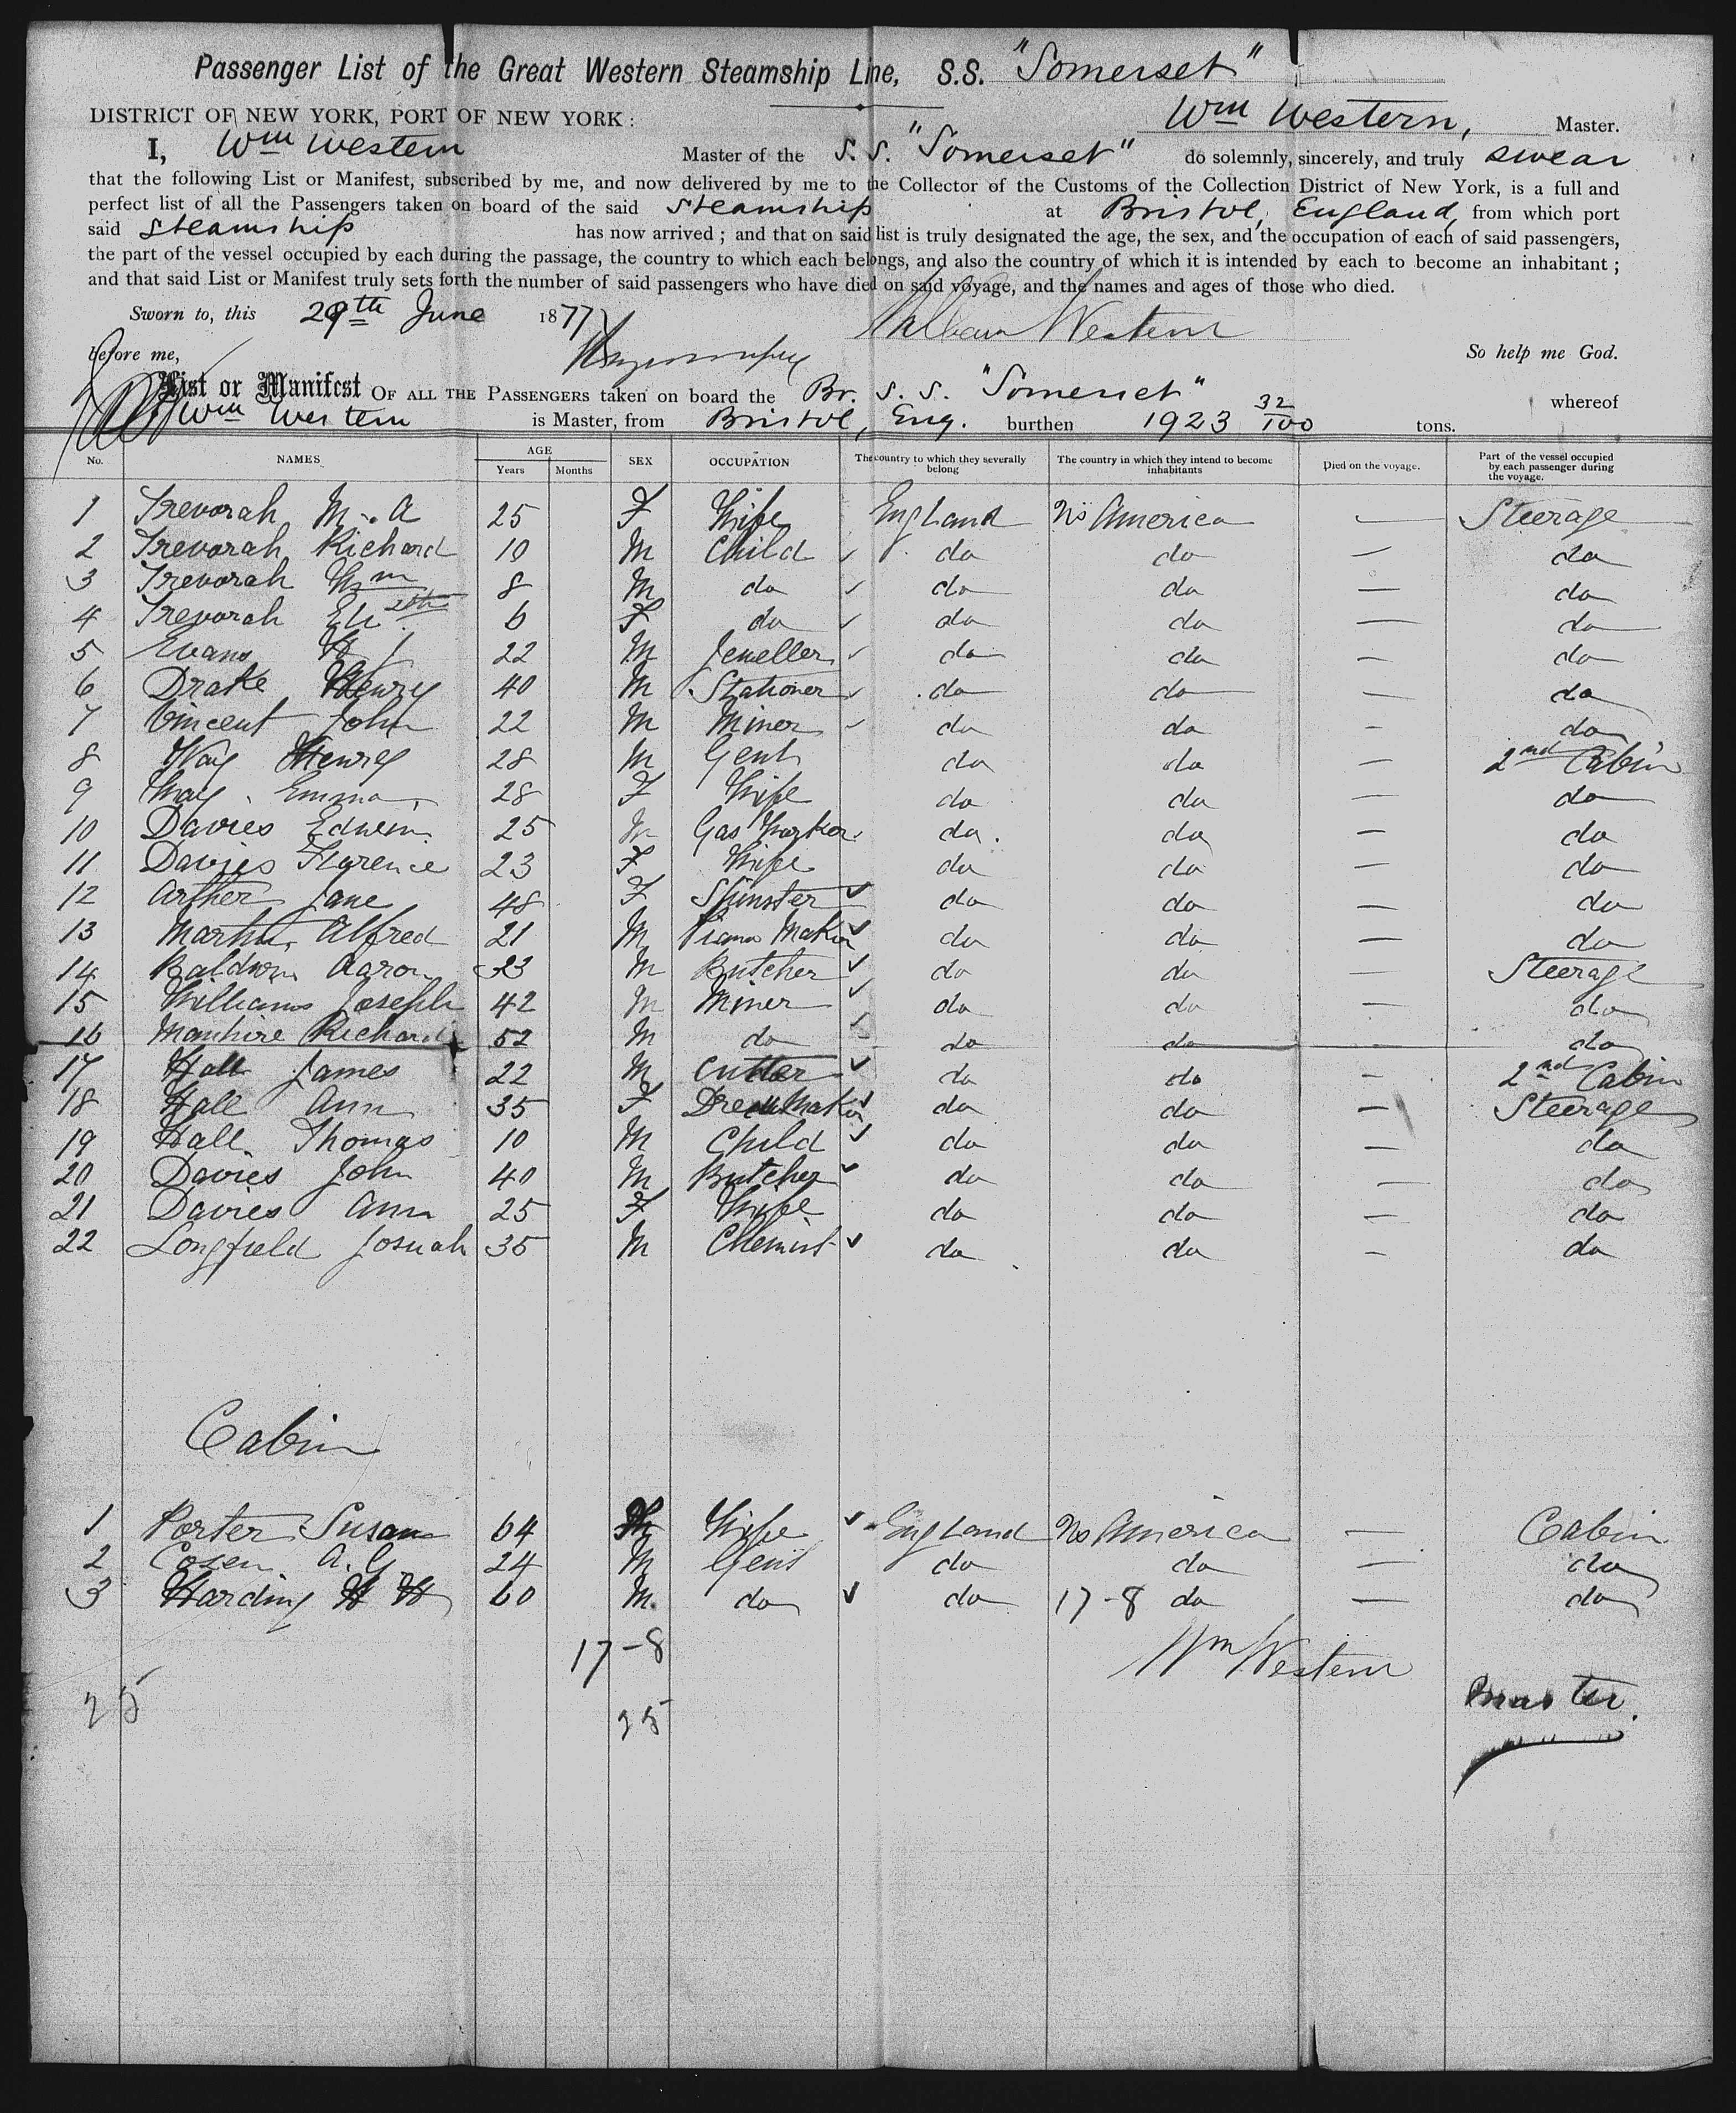 Passenger List of the Great Western Steamship Line, S.S. "Somerset"
DISTRICT OF NEW YORK, PORT OF NEW YORK : Wm Western, Master.
I, Wm Western Master of the S.S. "Somerset" do solemnly, sincerely, and truly swear
that the following List or Manifest, subscribed by me, and now delivered by me to the Collector of the Customs of the Collection District of New York, is a full and
perfect list of all the Passengers taken on board of the said Steamship at Bristol, England, from which port
said Steamship has now arrived ; and that on said list is truly designated the age, the sex, and the occupation of each of said passengers,
the part of the vessel occupied by each during the passage, the country to which each belongs, and also the country of which it is intended by each to become an inhabitant ;
and that said List or Manifest truly sets forth the number of said passengers who have died on said voyage, and the names and ages of those who died.
Sworn to, this 29th June 1877 William Western
before me, So help me God.
List or Manifest OF ALL THE PASSENGERS taken on board the Br. S. S. "Somerset" whereof
Wm Western is Master, from Bristol, Eng. burthen 1923 32/100 tons.
No. NAMES AGE Years Months SEX OCCUPATION The country to which they severally belong The country in which they intend to become inhabitants Died on the voyage. Part of the vessel occupied by each passenger during the voyage.
1 Trevorah M. A 25 F Wife England No America — Steerage
2 Trevorah Richard 10 M Child do do — do
3 Trevorah Wm 8 M do do do — do
4 Trevorah Elizth 6 F do do do — do
5 Evans H J 22 M Jeweller do do — do
6 Drake Henry 40 M Stationer do do — do
7 Vincent John 22 M Miner do do — do
8 Way Henry 28 M Gent do do — 2nd Cabin
9 Way Emma 28 F Wife do do — do
10 Davies Edwin 25 M Gas Worker do do — do
11 Davies Florence 23 F Wife do do — do
12 Arther Jane 48 F Spinster do do — do
13 Martin Alfred 21 M Piano Maker do do — do
14 Baldwin Aaron 23 M Butcher do do — Steerage
15 Williams Joseph 42 M Miner do do — do
16 Manhire Richard 52 M do do do — do
17 Hall James 22 M Cutter do do — 2nd Cabin
18 Hall Ann 35 F Dressmaker do do — Steerage
19 Hall Thomas 10 M Child do do — do
20 Davies John 40 M Butcher do do — do
21 Davies Ann 25 F Wife do do — do
22 Longfield Josuah 35 M Chemist do do — do
Cabin
1 Porter Susan 64 Wife England No America — Cabin
2 Cosen A. G. 24 M Gent do do — do
3 Harding H W 60 M. do do 17-8 do — do
17-8 Wm Western
25 25 Master.